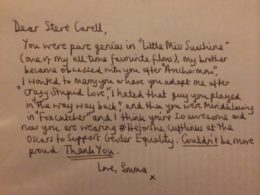 Dear Steve Carell,
You were pure genius in "Little Miss Sunshine"
(one of my all time favourite films), my brother
became obsessed with you after "Anchorman",
I wanted to marry you where you adopt me after
"Crazy Stupid Love", I hated that guy you played
in "The Way Way back", and then you were Mindblowing
in "Foxcatcher" and I think you're so awesome and
now you are wearing #HeForShe cufflinks at the
Oscars to Support Gender Equality. Couldn't be more
proud. Thank You.
Love, Emma
x